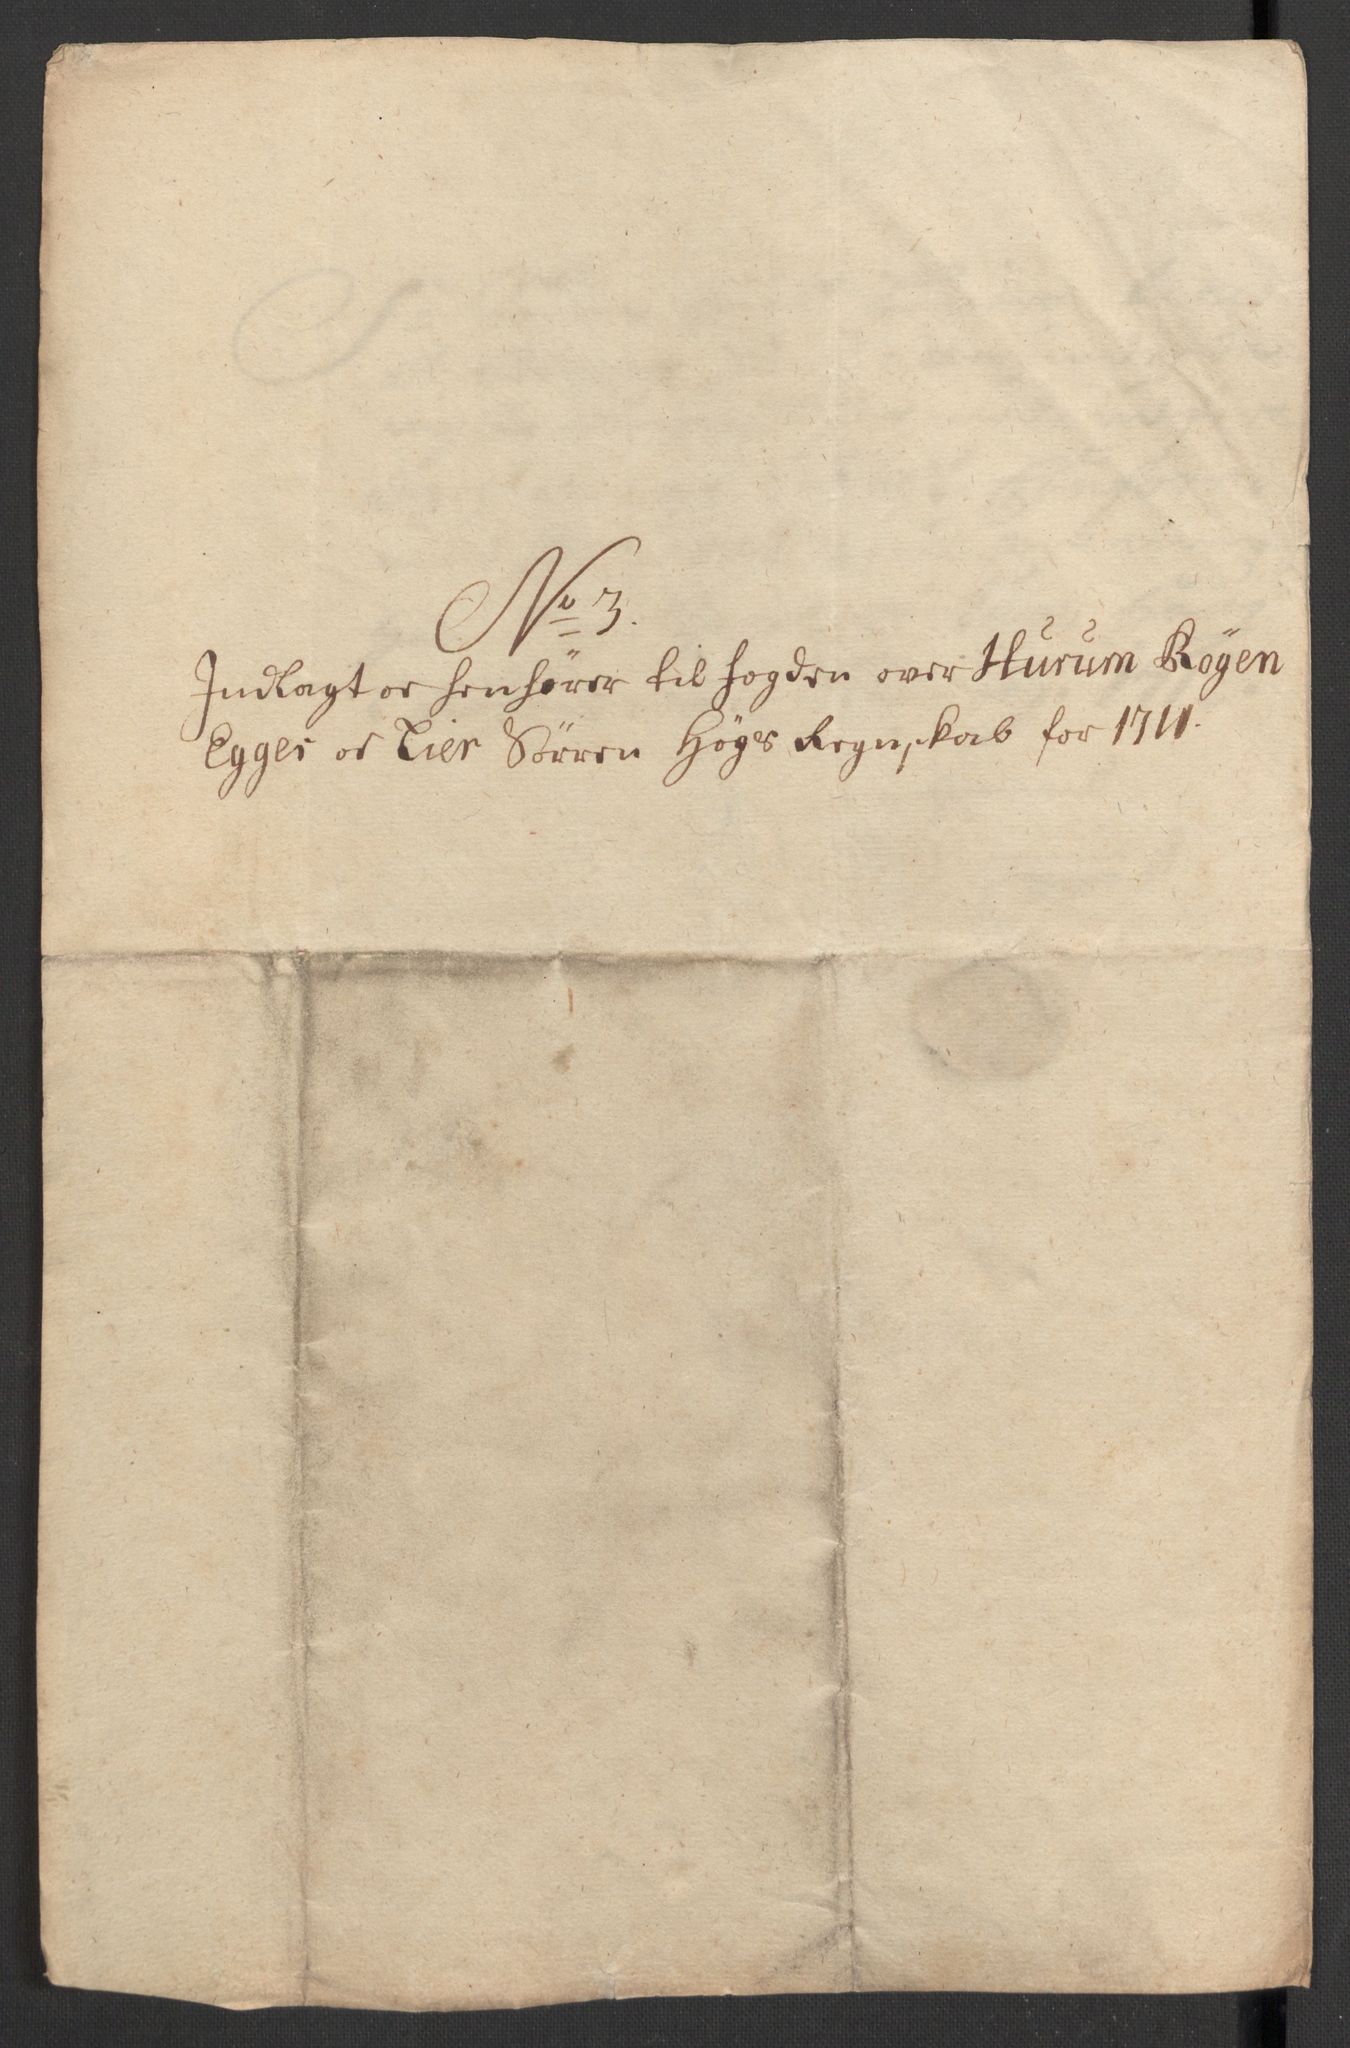 No 3.
Indlagt oc henhører til fogden over Hurum Røgen
Egger oc Lier Sørren Høÿs Regnskab for 1711.